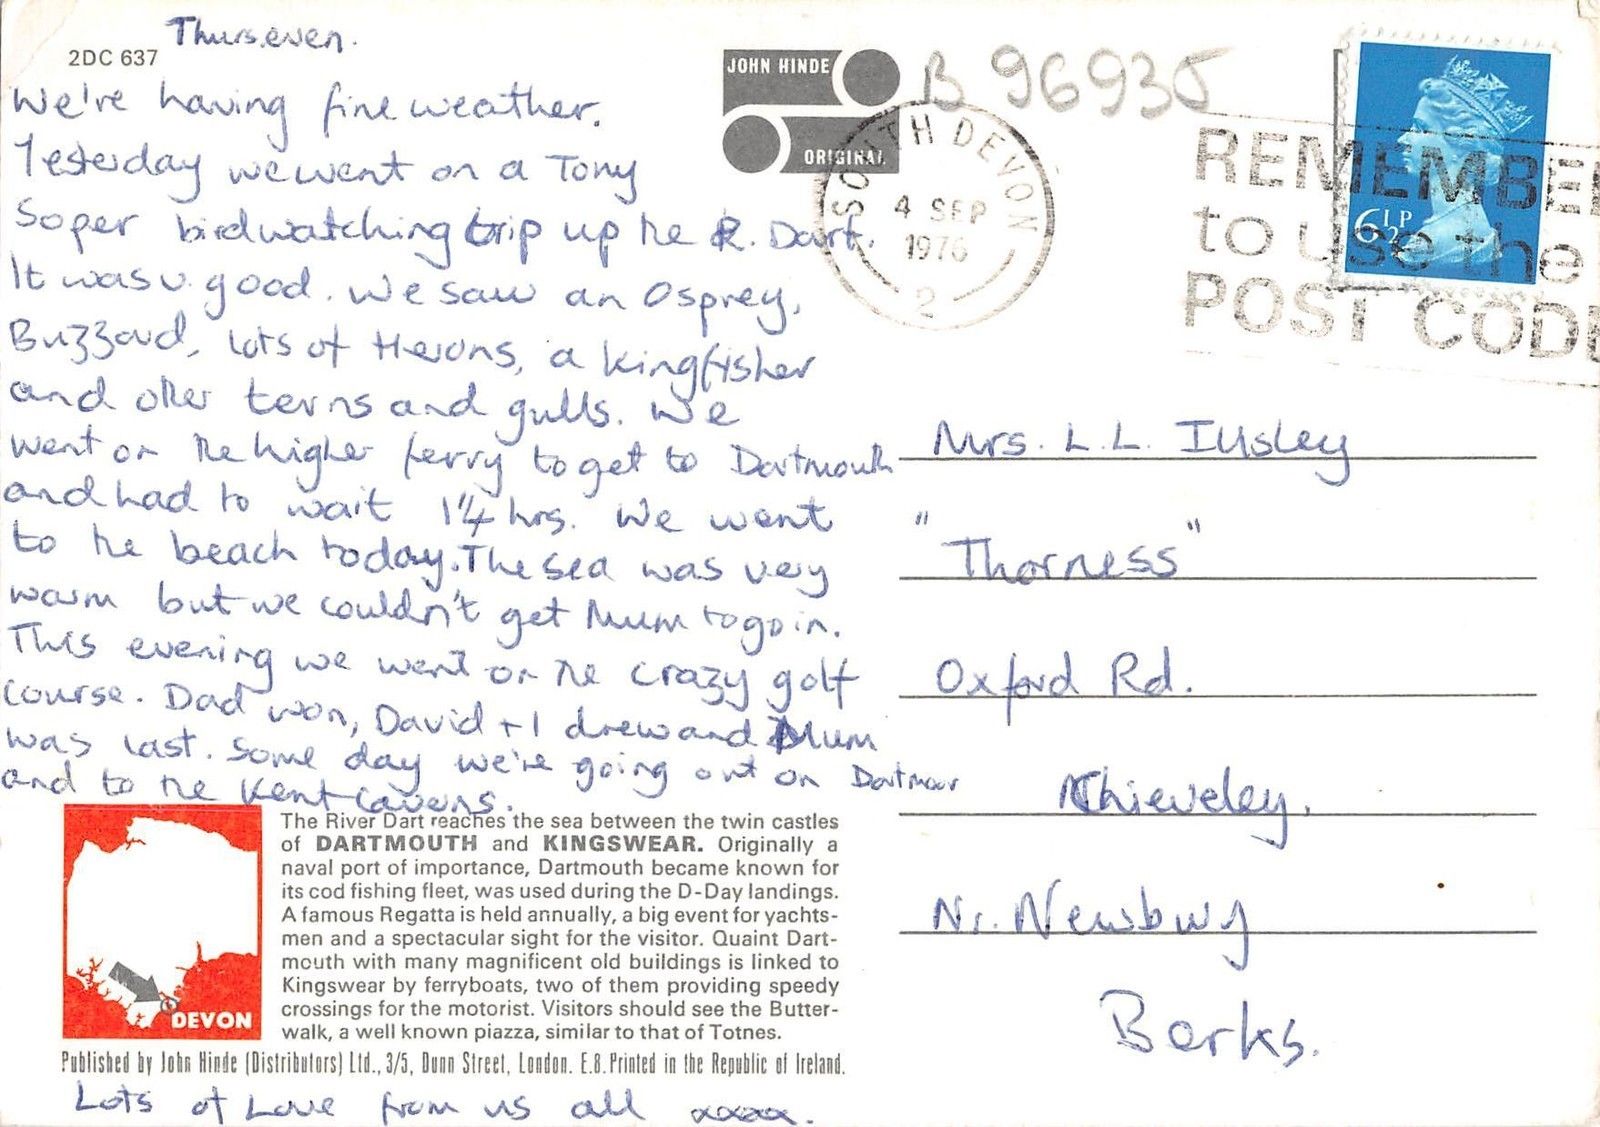 Thurs. even.
2DC 637
We're having fine weather.
Yesterday we went on a Tony
Soper birdwatching trip up the R. Dart.
It was v. good. We saw an Osprey,
Buzzard, lots of Herons, a kingfisher
and other terns and gulls. We
went on the higher ferry to get to Dartmouth
and had to wait 1¼ hrs. We went
to the beach today. The sea was very
warm but we couldn't get Mum to go in.
This evening we went on the crazy golf
course. Dad won, David + I drew and Mum
was last. Some day we're going out on Dartmoor
and to the Kent caverns.
The River Dart reaches the sea between the twin castles
of DARTMOUTH and KINGSWEAR. Originally a
naval port of importance, Dartmouth became known for
its cod fishing fleet, was used during the D-Day landings.
A famous Regatta is held annually, a big event for yachts-
men and a spectacular sight for the visitor. Quaint Dart-
mouth with many magnificent old buildings is linked to
Kingswear by ferryboats, two of them providing speedy
crossings for the motorist. Visitors should see the Butter-
walk, a well known piazza, similar to that of Totnes.
DEVON
Published by John Hinde (Distributors) Ltd., 3/5, Dunn Street, London. E.8. Printed in the Republic of Ireland.
Lots of Love from us all xxxx.
JOHN HINDE
ORIGINAL
B 96935
SOUTH DEVON
4 SEP
1976
2
REMEMBE
to use the
POST CODE
6½P
Mrs. L. L.
"Thorness"
Oxford Rd.
Chieveley,
Nr. Newbury
Berks.